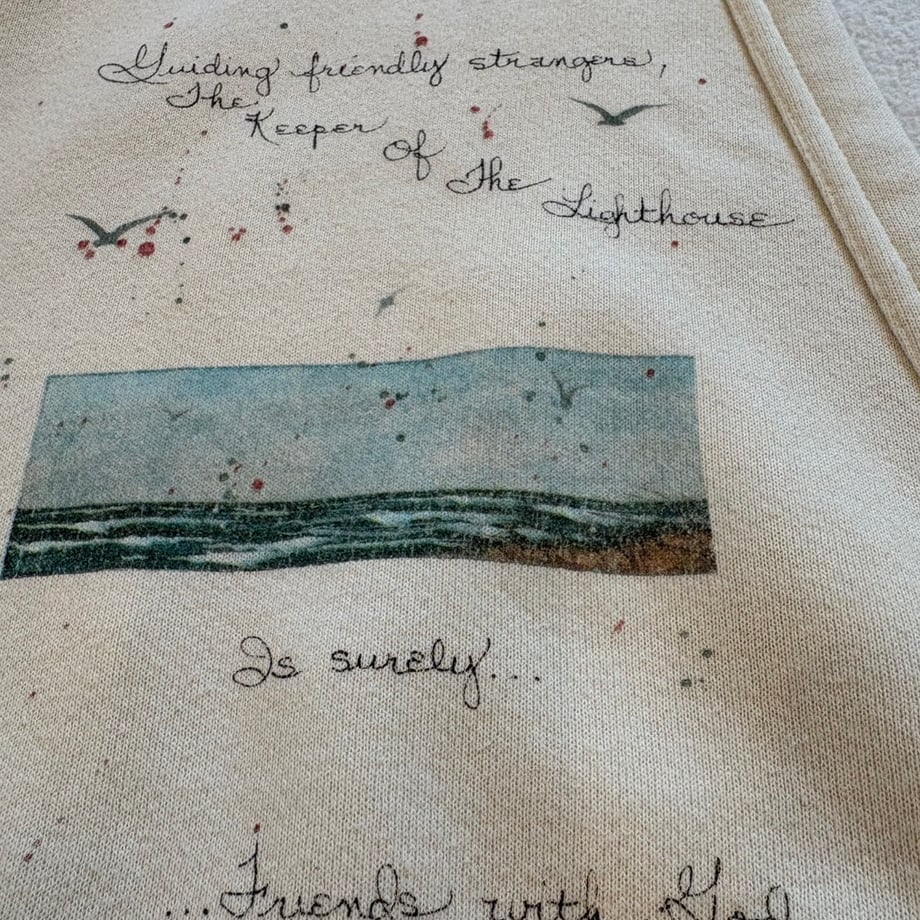 Guiding friendly strangers,
The
Keeper
of
The
Lighthouse
Is surely...
...Friends with God